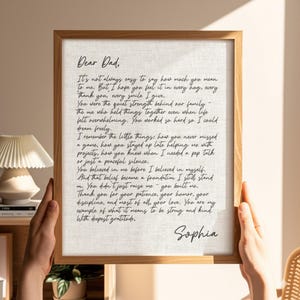 Dear Dad,
It's not always easy to say how much you mean
to me. But I hope you feel it in every hug, every
thank you, every smile I give.
You were the quiet strength behind our family -
the one who held things together even when life
felt overwhelming. You worked so hard so I could
dream freely.
I remember the little things: how you never missed
a game, how you stayed up late helping me with
projects, how you knew when I needed a pep talk
or just a peaceful silence.
You believed in me before I believed in myself.
And that belief became a foundation I still stand
on. You didn't just raise me - you built me.
Thank you for your patience, your humor, your
discipline, and most of all your love. You are my
example of what it means to be strong and kind.
With deepest gratitude,
Sophia